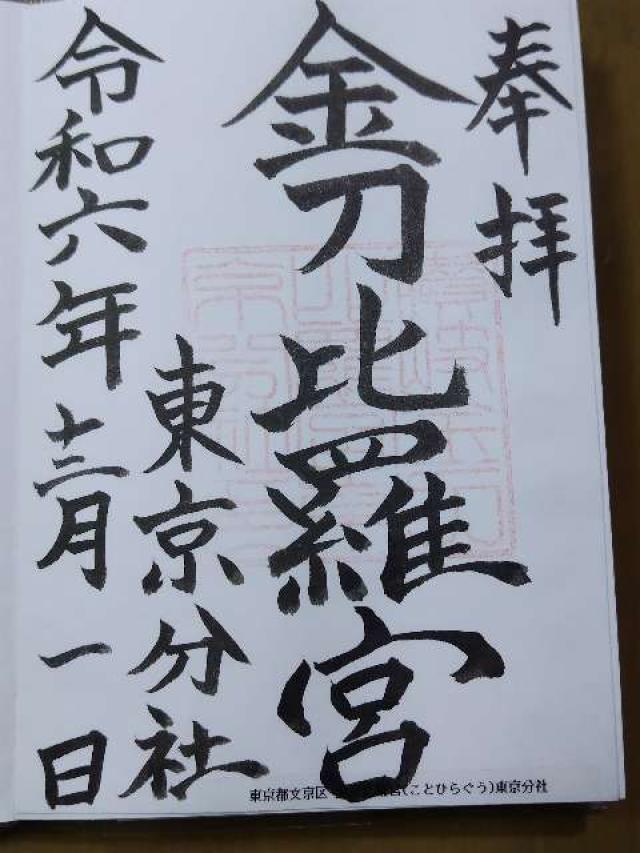 奉拝
金刀比羅宮
東京分社
令和六年十二月一日
東京都文京区 (ことひらぐう)東京分社